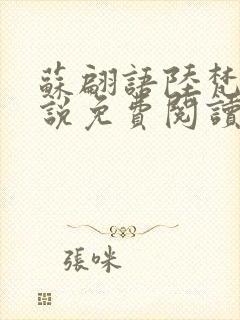 蘇翩語陸梵
說免費閱讀
張咪